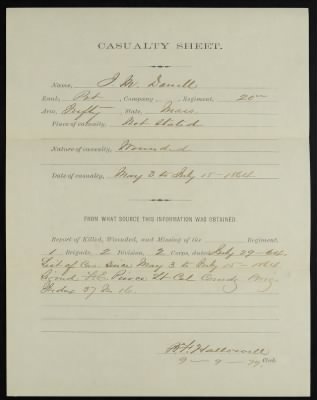 CASUALTY SHEET.
Name, J. W.
Rank, Pvt Company, Regiment, 20
Arm, Infty State, Mass.
Place of casualty, Not Stated
Nature of casualty, Wounded
Date of casualty, May 3 to July 15 - 1864
FROM WHAT SOURCE THIS INFORMATION WAS OBTAINED.
Report of Killed, Wounded, and Missing of the Regiment,
1 Brigade, 2 Division, 2 Corps, dated July 29 - 64
List of Cas. since May 3 to July 15 - 1864
Signed Pierce Lt Col Comdg Brig.
Index 37
Clerk.
9 - 9 - 79.